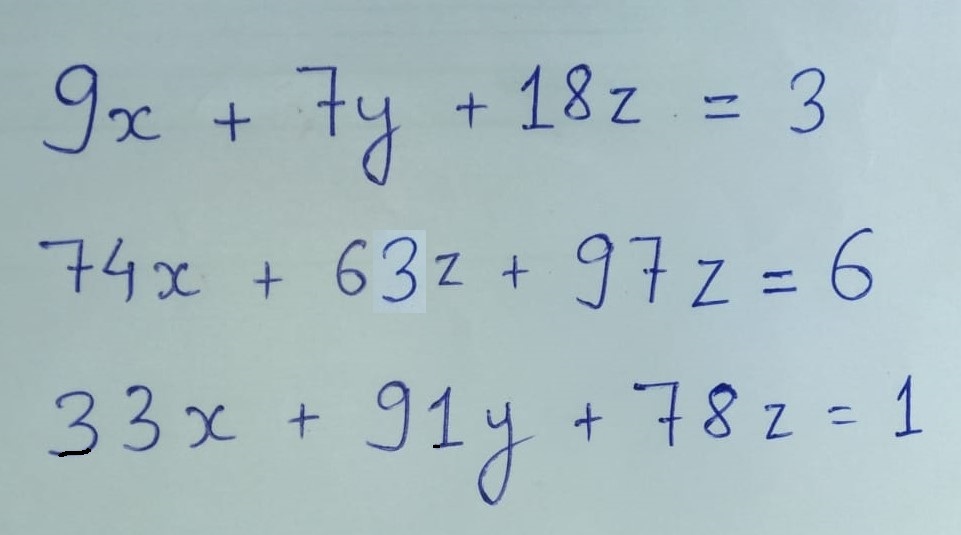 9x + 7y + 18z = 3
74x + 63z + 97z = 6
33x + 91y + 78z = 1